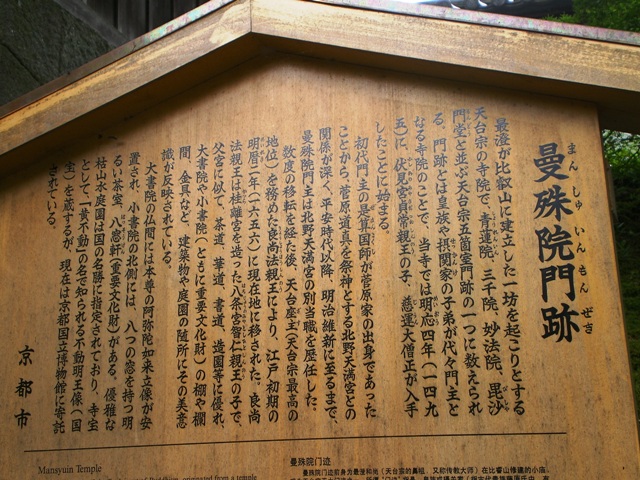 曼殊院門跡
まんしゅいんもんぜき
最澄が比叡山に建立した一坊を起こりとする
天台宗の寺院で、青蓮院、三千院、妙法院、毘沙
門堂と並ぶ天台宗五箇室門跡の一つに数えられ
る。門跡とは皇族や摂関家の子弟が代々門主と
なる寺院のことで、当寺では明応四年(一四九
五)に、伏見宮貞常親王の子、慈運大僧正が入寺
したことに始まる。
初代門主の是算国師が菅原家の出身であった
ことから、菅原道真を祭神とする北野天満宮との
関係が深く、平安時代以降、明治維新に至るまで、
曼殊院門主は北野天満宮の別当職を歴任した。
数度の移転を経た後、天台座主(天台宗最高の
地位)を務めた良尚法親王により、江戸初期の
明暦二年(一六五六)に現在地に移された。良尚
法親王は桂離宮を造った八条宮智仁親王の子で、
父宮に似て、茶道、華道、書道、造園等に優れ、
大書院や小書院(ともに重要文化財)の棚や欄
間、金具など、建築物や庭園の随所にその美意
識が反映されている。
大書院の仏間には本尊の阿弥陀如来立像が安
置され、小書院の北側には、八つの窓を持つ明
るい茶室、八窓軒(重要文化財)がある。優雅な
枯山水庭園は国の名勝に指定されており、寺宝
として、「黄不動」の名で知られる不動明王像(国
宝)を蔵するが、現在は京都国立博物館に寄託
されている。
京都市
Mansyuin Temple
曼殊院门迹
曼殊院门迹前身为最澄和尚(天台宗的鼻祖，又称传教大师)在比睿山修建的小庙。